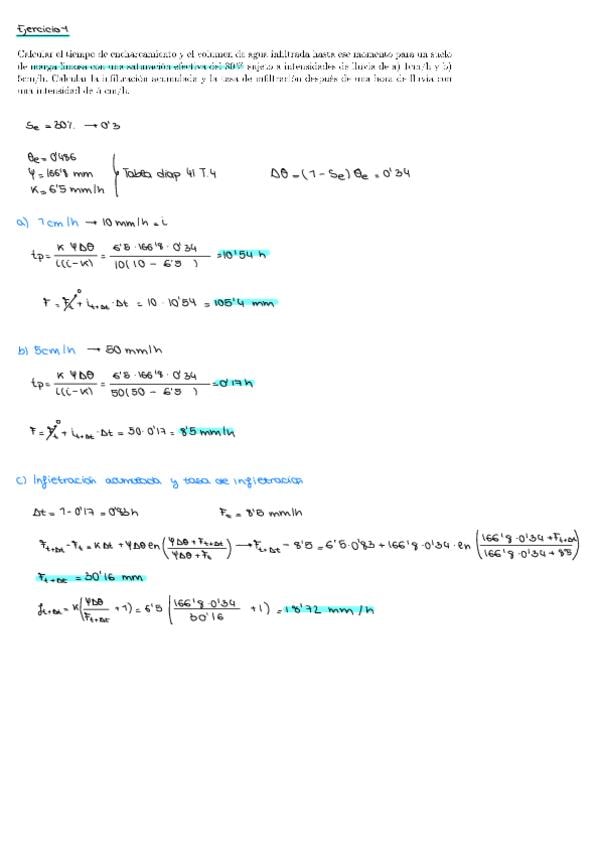 Ejercicio 1
Calcular el tiempo de encharcamiento y el volumen de agua infiltrada hasta ese momento para un suelo
de marga limosa con una saturación efectiva del 30% sujeto a intensidades de lluvia de a) 1cm/h y b)
5cm/h. Calcular la infiltración acumulada y la tasa de infiltración después de una hora de lluvia con
una intensidad de 5 cm/h.
Se = 30% → 0'3
θe = 0'486
Ψ = 166'8 mm
K = 6'5 mm/h
Tabla diap 41 T.4
Δθ = (1 - Se) θe = 0'34
a) 1 cm/h → 10 mm/h = i
tp = K ΨΔθ / i(i-K) = 6'5 · 166'8 · 0'34 / 10(10 - 6'5 ) = 10'54 h
F = Ft⁰ + it+Δt · Δt = 10 · 10'54 = 105'4 mm
b) 5cm/h → 50 mm/h
tp = K ΨΔθ / i(i-K) = 6'5 · 166'8 · 0'34 / 50(50 - 6'5 ) = 0'17 h
F = Ft⁰ + it+Δt · Δt = 50 · 0'17 = 8'5 mm/h
c) Infiltración acumulada y tasa de infiltración
Δt = 1 - 0'17 = 0'83h Ft = 8'5 mm/h
Ft+Δt - Ft = K Δt + ΨΔθ ln (ΨΔθ + Ft+Δt / ΨΔθ + Ft) → Ft+Δt - 8'5 = 6'5 · 0'83 + 166'8 · 0'34 · ln (166'8 · 0'34 + Ft+Δt / 166'8 · 0'34 + 8'5)
Ft+Δt = 30'16 mm
ft+Δt = K (ΨΔθ / Ft+Δt + 1) = 6'5 (166'8 · 0'34 / 30'16 + 1) = 18'72 mm/h